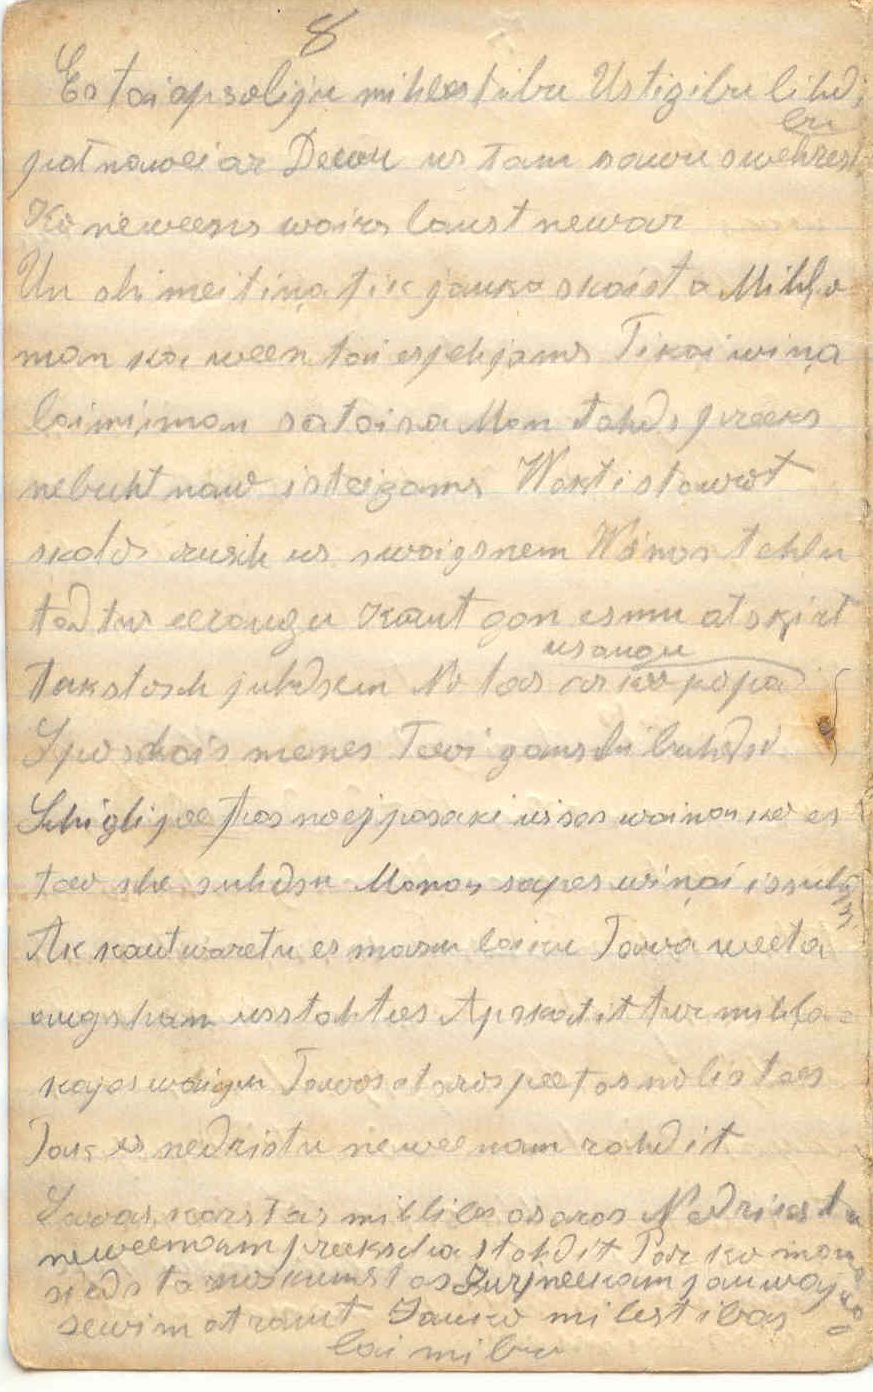 8
Es tai apsoliju mihlestibu Ustizibu lihds
pat nawei ar Deewu us tam sawu swehrestibu
Ko neweens wairs laust newar
Un shi meitiņa tik jauka skaista Mihļo
man ka ween tai espehjams Tikai wiņa
laimi man sataisa Man tahds preeks
nebuht naw isteizams Naktī stawot
skatos rusih us swaigsnem Wiņas tehlu
tad tur eeraugu Kaut gan esmu atskirt
Tukstosch juhdsem No tas ar
usaugu
Sposchais menes Tewi gauschi luhdsu
Schigli pee tas noej pasaki wisas wainas ko es
tew she suhdsu Manas sapes wiņai issuhdsi
Ak kaut waretu es masu laiku Tawa weeta
augscham usstahtees Apskatit tur mihļa=
kajos waigu Tawos staros pee tas nolistees
Tak es nedristu neweenam rahdit
Sawas karstas mihlibas asaras Nedrikstu
neweenam preekscha stahdit Par ko man
sirds ta noskumst as Zur neekam jau way
sewim atraut Jauko milestibas
laimibu